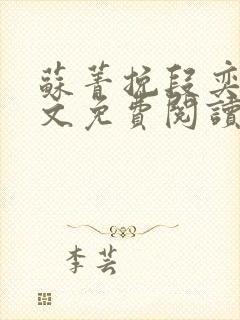 蘇菁挽段奕
文免費閱讀
李芸